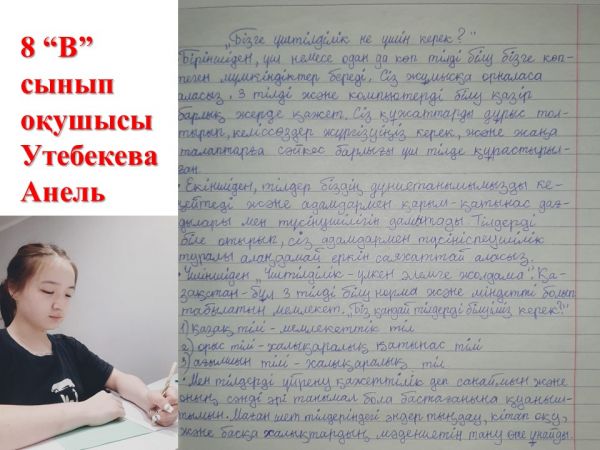 8 “В”
сынып
оқушысы
Утебекева
Анель
„Бізге үштілділік не үшін керек?"
Біріншіден, үш немесе одан да көп тілді білу бізге көп-
теген мүмкіндіктер береді. Сіз жұмысқа орналаса
аласыз. 3 тілді және компьютерді білу қазір
барлық жерде қажет. Сіз құжаттарды дұрыс тол-
тырып, келіссөздер жүргізуіңіз керек, және жаңа
талаптарға сәйкес барлығы үш тілде құрастырыл-
ған.
• Екіншіден, тілдер біздің дүниетанымымызды ке-
ңейтеді және адамдармен қарым-қатынас дағ-
дылары мен түсінушілігін дамытады. Тілдерді
біле отырып, сіз адамдармен түсініспеушілік
туралы алаңдамай еркін саяхаттай аласыз.
• Үшіншіден „Үштілділік - үлкен әлемге жолдама". Қа-
зақстан - бұл 3 тілді білу норма және міндетті болып
табылатын мемлекет. „Біз қандай тілдерді білуіміз керек?"
1) қазақ тілі - мемлекеттік тіл
2) орыс тілі - халықаралық қатынас тілі
3) ағылшын тілі - халықаралық тіл
• Мен тілдерді үйрену қажеттілік деп санаймын және
оның сәнді әрі танымал бола бастағанына қуаныш-
тымын. Маған шет тілдеріндегі әндер тыңдау, кітап оқу,
және басқа халықтардың мәдениетін тану өте ұнайды.